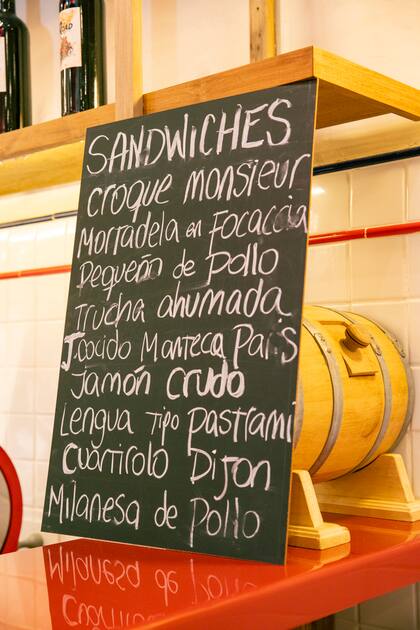 SANDWICHES
croque monsieur
Mortadela en Focaccia
Pequeño de pollo
Trucha ahumada
J.cocido Manteca Paris
Jamón crudo
Lengua Tipo Pastrami
Cuartirolo Dijon
Milanesa de Pollo